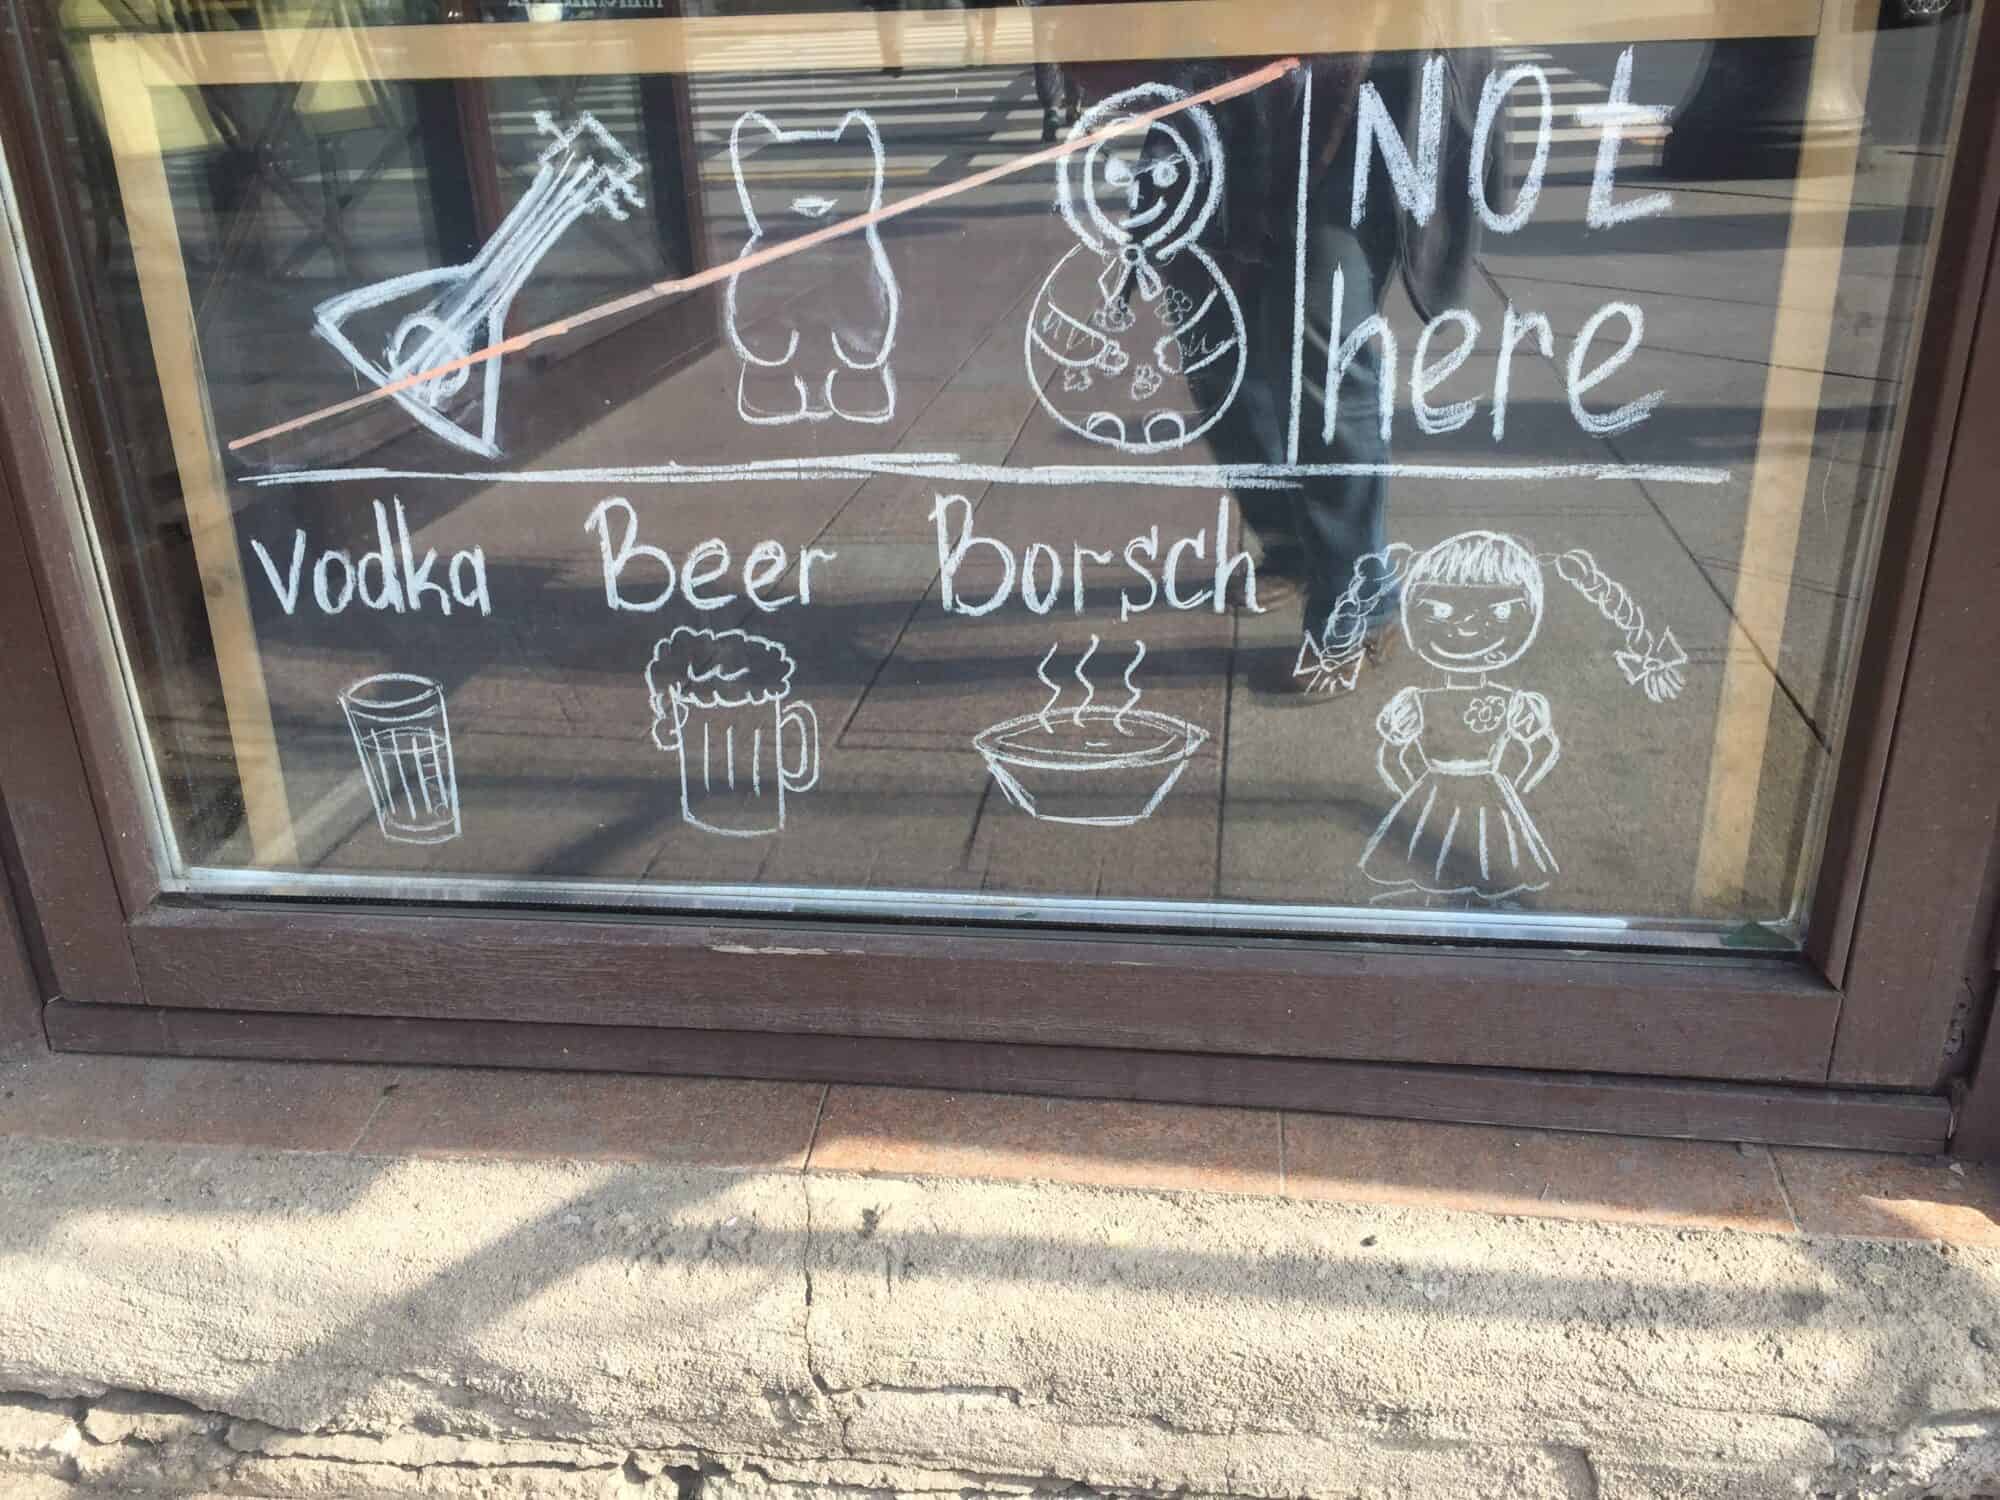 NOt
here
Vodka Beer Borsch